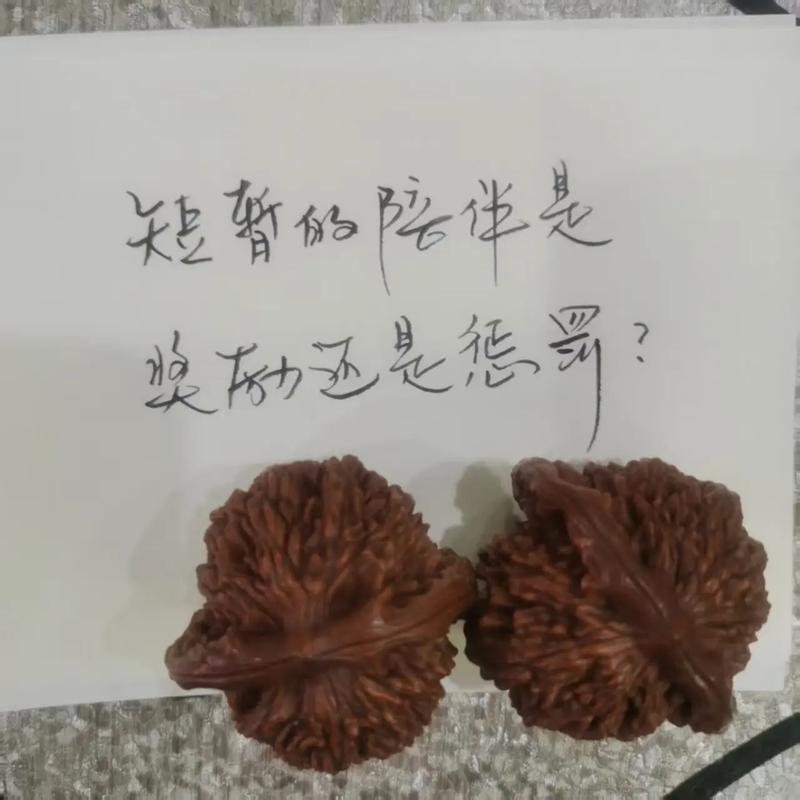 短暂的陪伴是
奖励还是惩罚?